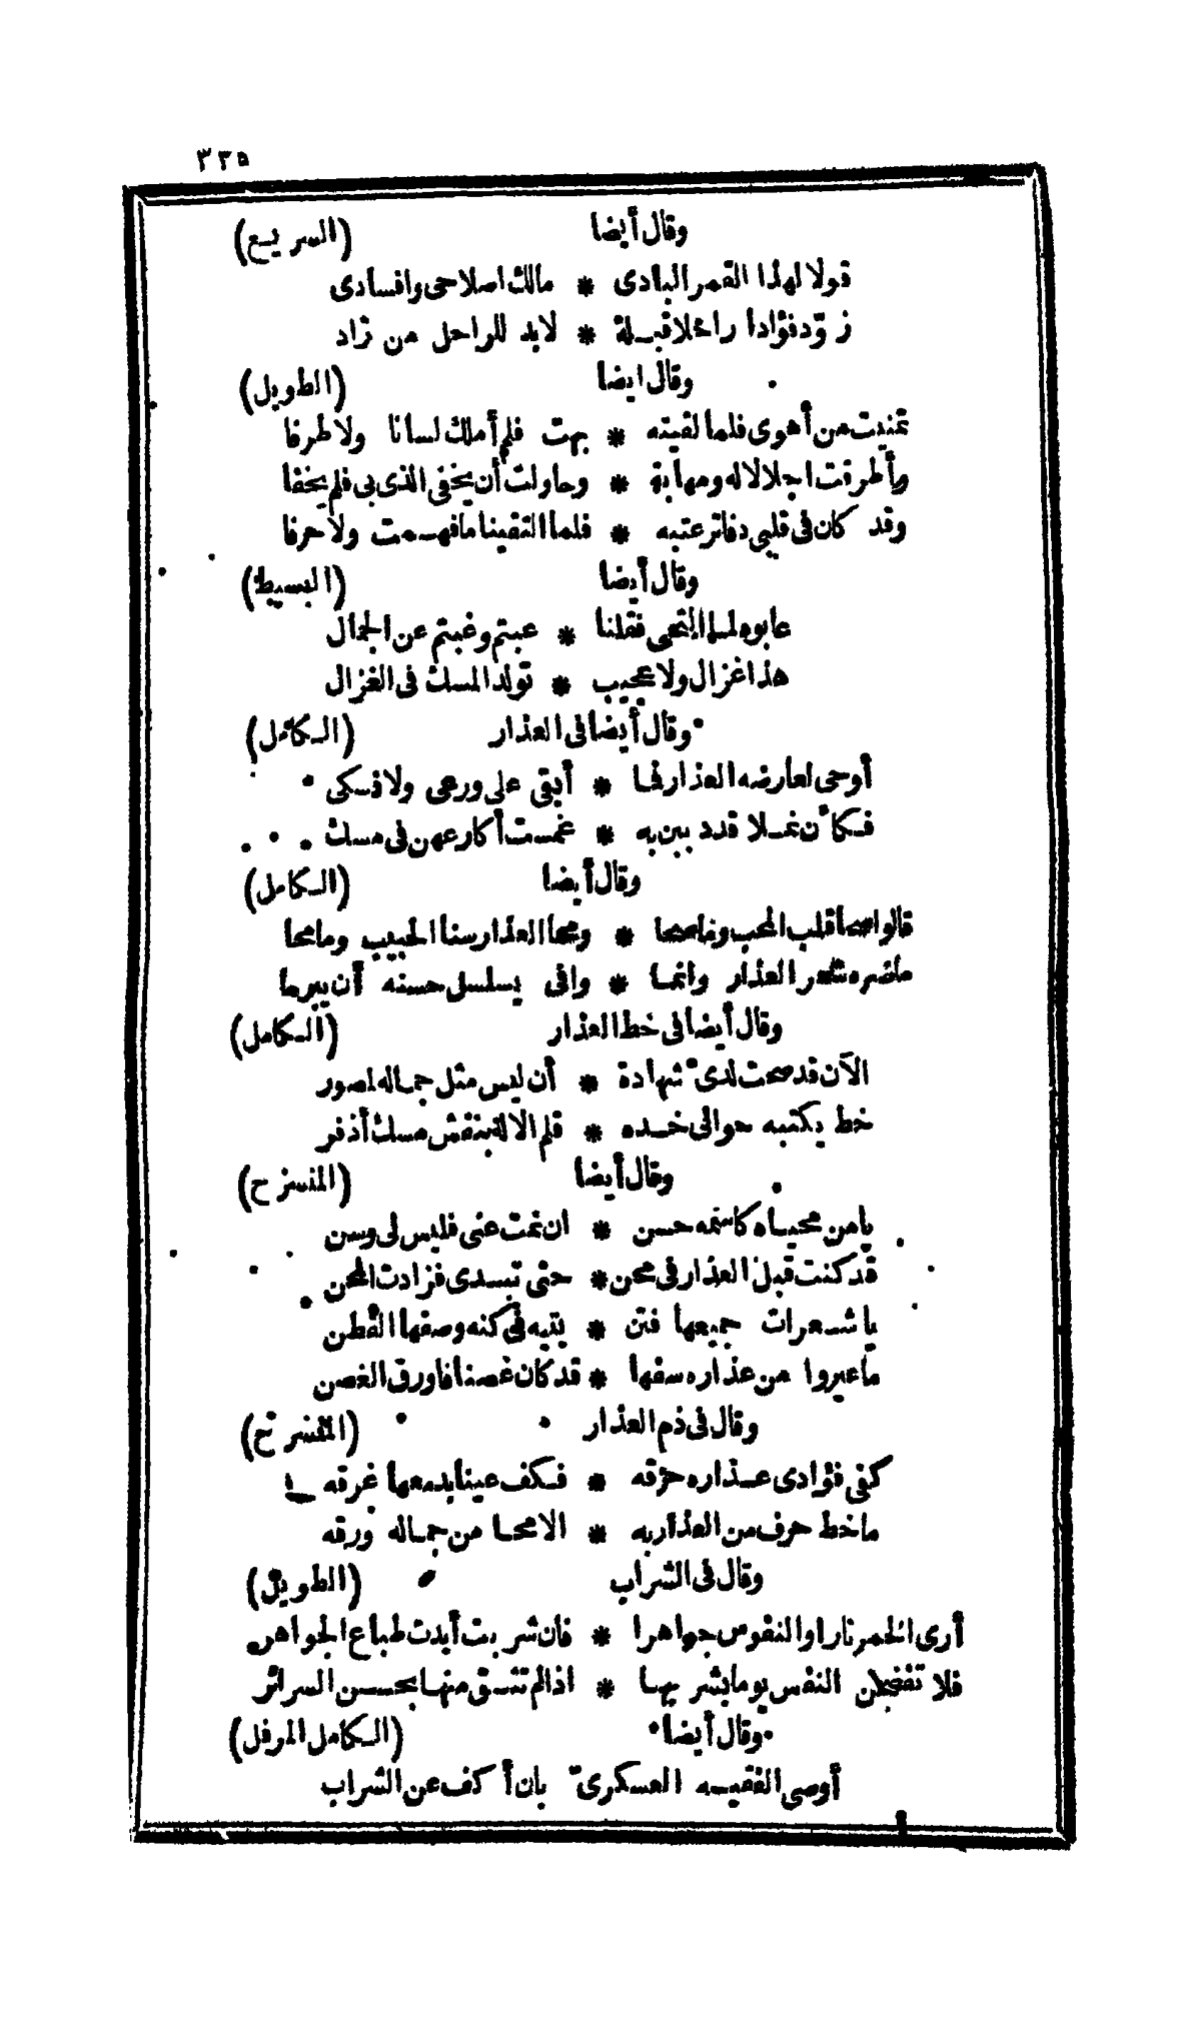 ٣٣٥
وقال أيضا (السريع)
قولا لهذا القمر البادى * مالك اصلاحى وافسادى
زوّد فؤادا راحلا قبلة * لابد للراحل من زاد
وقال ايضا (الطويل)
تمنيت من أهوى فلما لقيته * بهت فلم أملك لسانا ولا طرفا
وأطرقت اجلالا له ومهابة * وحاولت أن يخفى الذى بى فلم يخفا
وقد كان فى قلبى دفاتر عتبه * فلما التقينا ما فهمت ولا حرفا
وقال أيضا (البسيط)
عابوه لما التحى فقلنا * عبتم وغبتم عن الجمال
هذا غزال ولا عجيب * تولد المسك فى الغزال
وقال أيضا فى العذار (الكامل)
أوحى لعارضه العذار فما * أبقى على ورعى ولا نسكى
فكأن نملا قد دببن به * غمست أكارعهن فى مسك
وقال أيضا (الكامل)
قالوا صحا قلب المحب وما صحا * ومحا العذار سنا الحبيب وما محا
ما ضره شعر العذار وانما * وافى يسلسل حسنه أن يبرحا
وقال أيضا فى خط العذار (الكامل)
الآن قد صحت لدىّ شهادة * أن ليس مثل جماله لمصور
خط يكتبه حوالى خده * قلم الاله بنقش مسك أذفر
وقال أيضا (المنسرح)
يامن محياه كاسمه حسن * ان نمت عنى فليس لى وسن
قد كنت قبل العذار فى محن * حتى تبدى فزادت المحن
يا شعرات جميعها فتن * يتيه فى كنه وصفها الفطن
ما عيروا من عذاره سفها * قد كان غصنا فاورق الغصن
وقال فى ذم العذار (المنسرح)
كفى فؤادى عذاره حرقه * فكف عينا بدمعها غرقه
ما خط حرف من العذار به * الا محا من جماله ورقه
وقال فى الشراب (الطويل)
أرى الخمر نارا والنفوس جواهرا * فان شربت أبدت طباع الجواهر
فلا تفضحن النفس يوما بشربها * اذا لم تثق منها بحسن السرائر
وقال أيضا (الكامل المرفل)
أوصى الفقيه العسكرىّ بان أكف عن الشراب